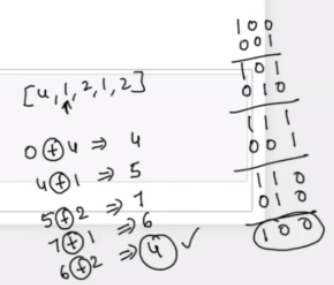 [4,1,2,1,2]
0 ⊕ 4 ⇒ 4
4 ⊕ 1 ⇒ 5
5 ⊕ 2 ⇒ 7
7 ⊕ 1 ⇒ 6
6 ⊕ 2 ⇒ 4 ✓
100
001
101
010
111
001
110
010
100